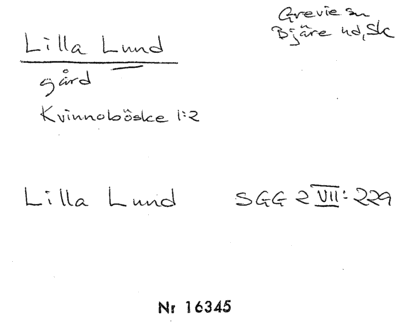 Grevie sn
Bjäre hd, Sk
Lilla Lund
gård
Kvinnoböske 1:2
Lilla Lund SGG 2 VII: 229
Nr 16345